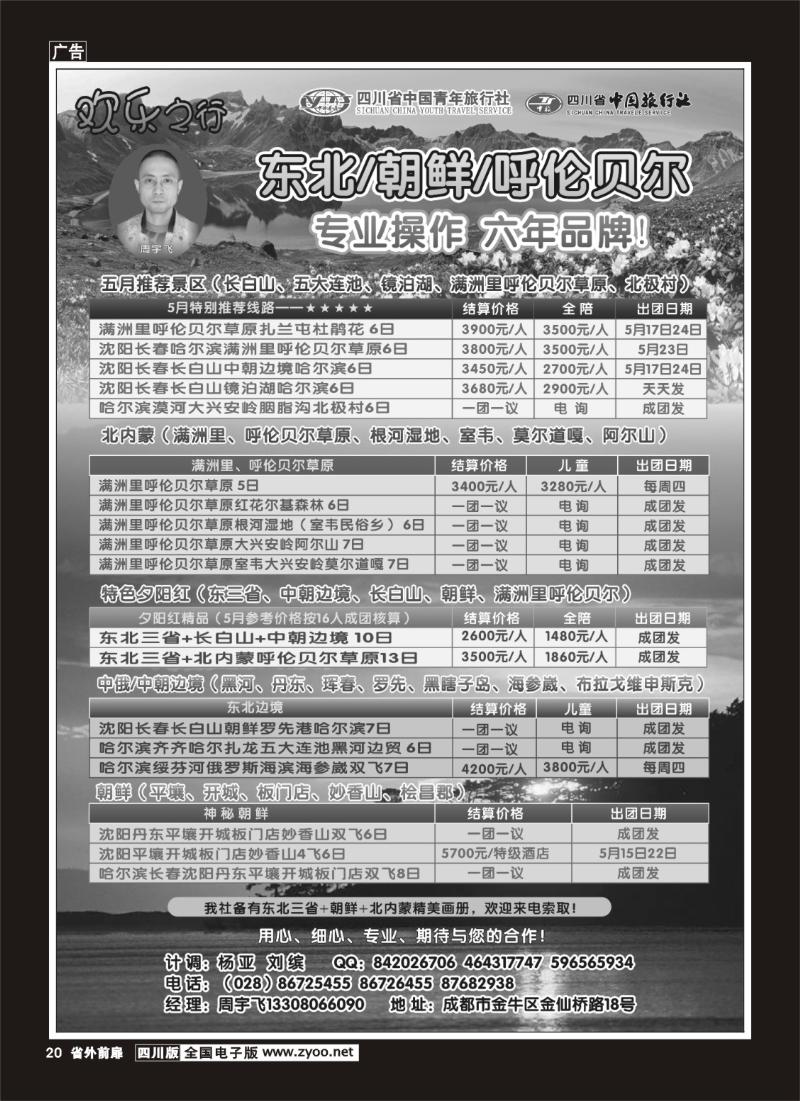 广告
欢乐之行
四川省中国青年旅行社
SICHUAN CHINA YOUTH TRAVEL SERVICE
四川省中国旅行社
SICHUAN CHINA TRAVELE SERVICE
东北/朝鲜/呼伦贝尔
周宇飞
专业操作 六年品牌!
五月推荐景区(长白山、五大连池、镜泊湖、满洲里呼伦贝尔草原、北极村)
5月特别推荐线路——★★★★★ 结算价格 全陪 出团日期
满洲里呼伦贝尔草原扎兰屯杜鹃花 6日 3900元/人 3500元/人 5月17日24日
沈阳长春哈尔滨满洲里呼伦贝尔草原6日 3800元/人 3500元/人 5月23日
沈阳长春长白山中朝边境哈尔滨6日 3450元/人 2700元/人 5月17日24日
沈阳长春长白山镜泊湖哈尔滨6日 3680元/人 2900元/人 天天发
哈尔滨漠河大兴安岭胭脂沟北极村6日 一团一议 电 询 成团发
北内蒙(满洲里、呼伦贝尔草原、根河湿地、室韦、莫尔道嘎、阿尔山)
满洲里、呼伦贝尔草原 结算价格 儿 童 出团日期
满洲里呼伦贝尔草原 5日 3400元/人 3280元/人 每周四
满洲里呼伦贝尔草原红花尔基森林 6日 一团一议 电 询 成团发
满洲里呼伦贝尔草原根河湿地(室韦民俗乡) 6日 一团一议 电 询 成团发
满洲里呼伦贝尔草原大兴安岭阿尔山 7日 一团一议 电 询 成团发
满洲里呼伦贝尔草原室韦大兴安岭莫尔道嘎 7日 一团一议 电 询 成团发
特色夕阳红(东三省、中朝边境、长白山、朝鲜、满洲里呼伦贝尔)
夕阳红精品(5月参考价格按16人成团核算) 结算价格 全陪 出团日期
东北三省+长白山+中朝边境 10日 2600元/人 1480元/人 成团发
东北三省+北内蒙呼伦贝尔草原13日 3500元/人 1860元/人 成团发
中俄/中朝边境(黑河、丹东、珲春、罗先、黑瞎子岛、海参崴、布拉戈维申斯克)
东北边境 结算价格 儿童 出团日期
沈阳长春长白山朝鲜罗先港哈尔滨7日 一团一议 电 询 成团发
哈尔滨齐齐哈尔扎龙五大连池黑河边贸 6日 一团一议 电 询 成团发
哈尔滨绥芬河俄罗斯海滨海参崴双飞7日 4200元/人 3800元/人 每周四
朝鲜(平壤、开城、板门店、妙香山、桧昌郡)
神秘朝鲜 结算价格 出团日期
沈阳丹东平壤开城板门店妙香山双飞6日 一团一议 成团发
沈阳平壤开城板门店妙香山4飞6日 5700元/特级酒店 5月15日22日
哈尔滨长春沈阳丹东平壤开城板门店双飞8日 一团一议 成团发
我社备有东北三省+朝鲜+北内蒙精美画册，欢迎来电索取!
用心、细心、专业、期待与您的合作!
计调: 杨亚 刘缤 QQ: 842026706 464317747 596565934
电话: (028)86725455 86726455 87682938
经理: 周宇飞13308066090 地址: 成都市金牛区金仙桥路18号
20 省外前扉 四川版 全国电子版 www.zyoo.net